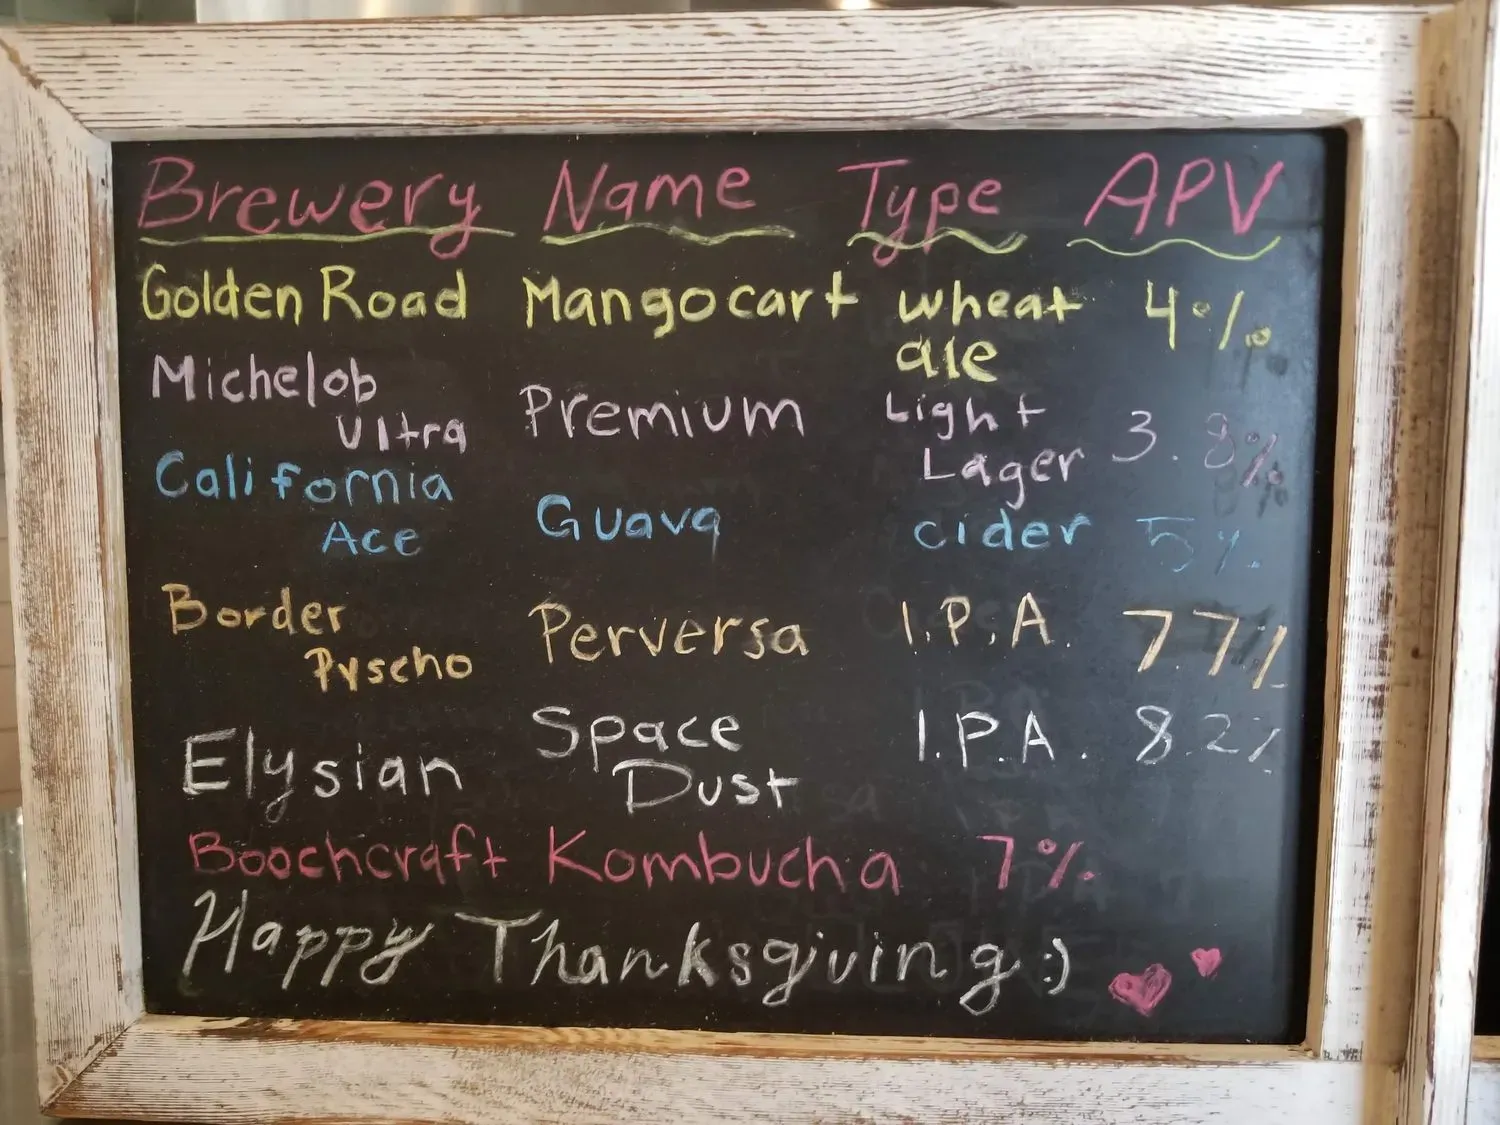 Brewery Name Type APV
Golden Road Mangocart wheat ale 4%
Michelob Ultra Premium Light Lager 3.8%
California Ace Guava cider 5%
Border Pyscho Perversa I.P.A. 77%
Elysian Space Dust I.P.A. 8.2%
Boochcraft Kombucha 7%
Happy Thanksgiving :)